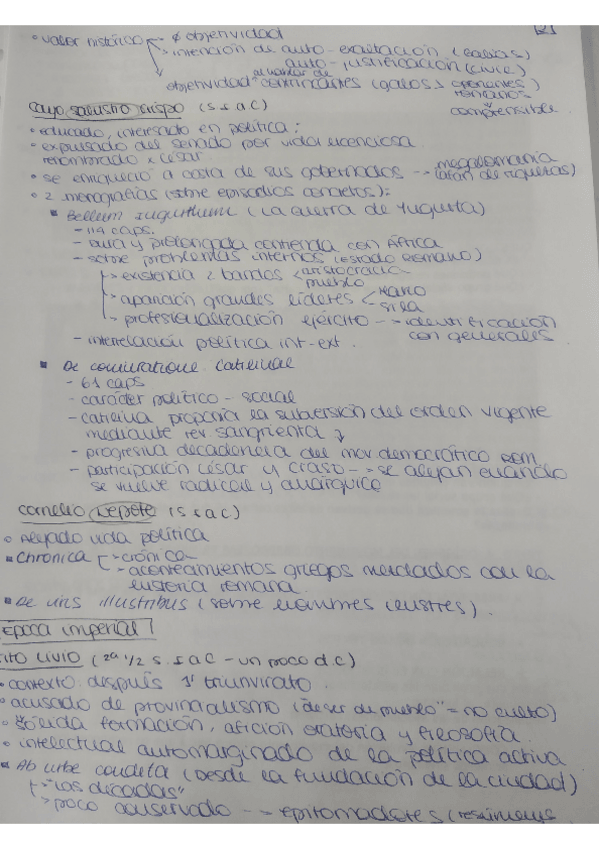 • valor histórico → ∄ objetividad
→ intención de auto-exaltación (Galias)
auto-justificación (civil)
objetividad al hablar de contrincantes (galos y oponentes romanos)
comprensible
Cayo Salustio Crispo (s. I a C)
• educado, interesado en política;
• expulsado del senado por vida licenciosa.
renombrado x César
• se enriqueció a costa de sus gobernados --> megalomanía
(afán de riquezas)
• 2 monografías (sobre episodios concretos):
▪ Bellum Iugurthum (La Guerra de Yugurta)
- 114 caps.
- dura y prolongada contienda con África
- sobre problemas internos (estado romano)
→ existencia 2 bandos < aristocracia
pueblo
→ aparición grandes líderes < Mario
Sila
→ profesionalización ejército --> identificación
con generales
- interrelación política int-ext.
▪ De coniuratione Catilinae
- 61 caps
- carácter político-social
- Catilina proponía la subversión del orden vigente
mediante rev sangrienta
- progresiva decadencia del democrático rom
- participación César y Craso --> se alejan cuando
se vuelve radical y anárquico
Cornelio Nepote (s. I a C)
• Alejado vida política
▪ Chronica → crónica
→ acontecimientos griegos mezclados con la
historia romana.
▪ De viris illustribus (sobre hombres ilustres).
Época imperial
Tito Livio (2ª 1/2 s. I a C - un poco d.C)
• contexto después 1er triunvirato.
• acusado de provincialismo ("de ser de pueblo" = no culto)
• Sólida formación, afición oratoria y filosofía.
• intelectual automarginado de la política activa
▪ Ab urbe condita (Desde la fundación de la ciudad)
→ "Las décadas"
→ poco conservado --> epitomadores (resúmenes